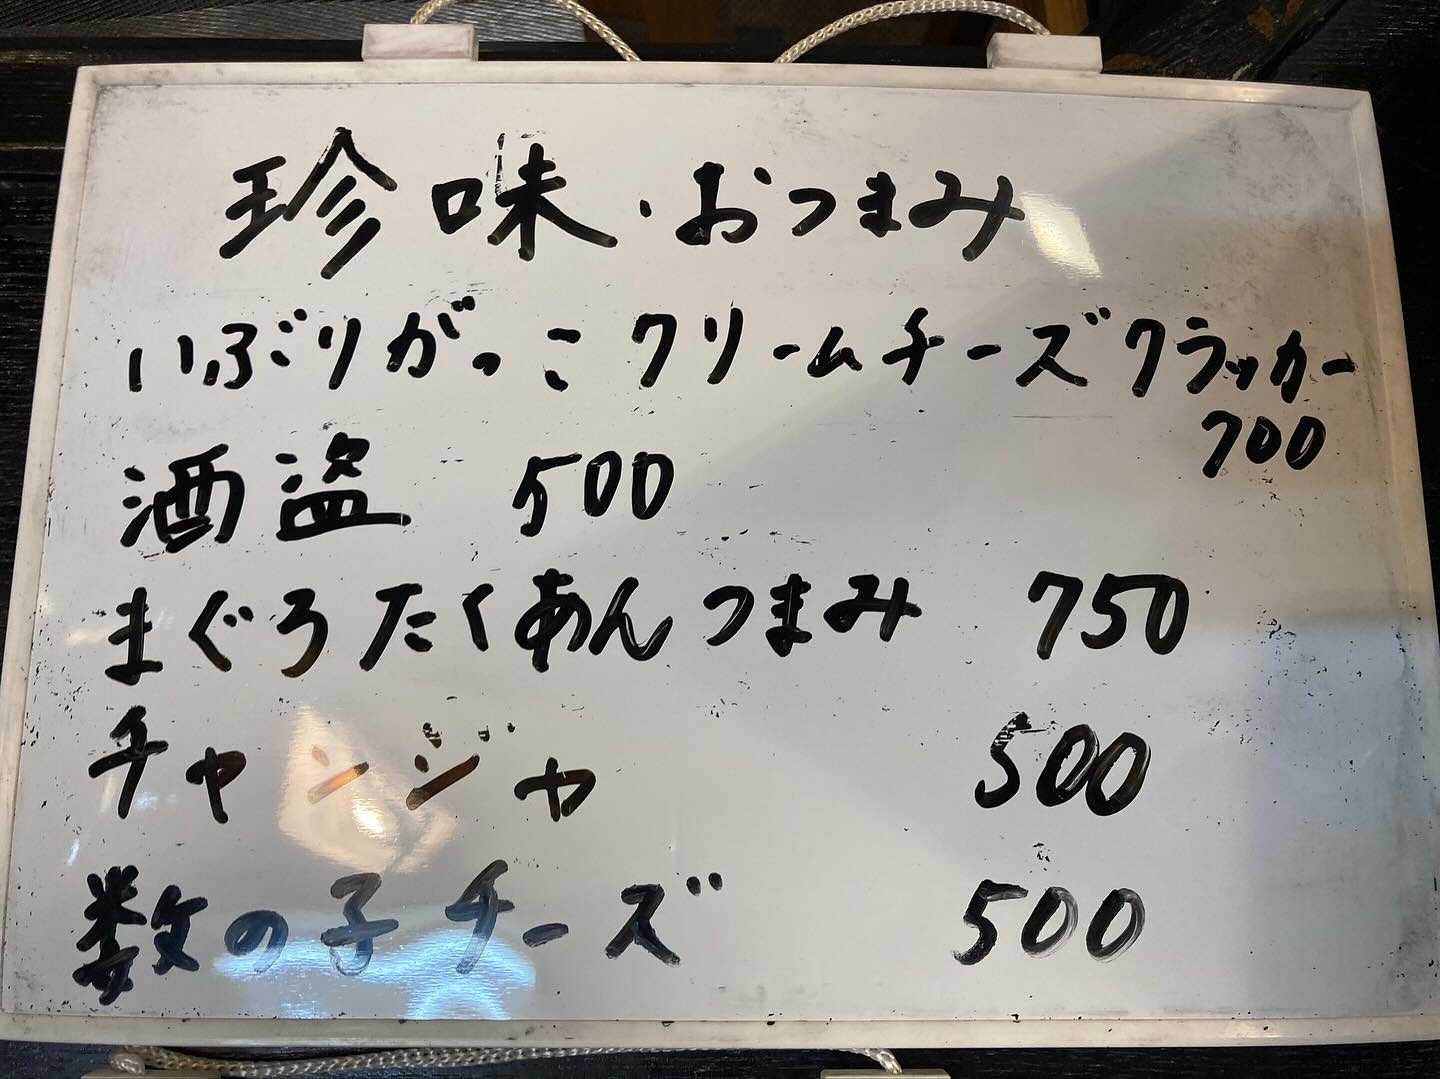 珍味・おつまみ
いぶりがっこクリームチーズクラッカー
700
酒盗 500
まぐろたくあんつまみ 750
チャンジャ 500
数の子チーズ 500